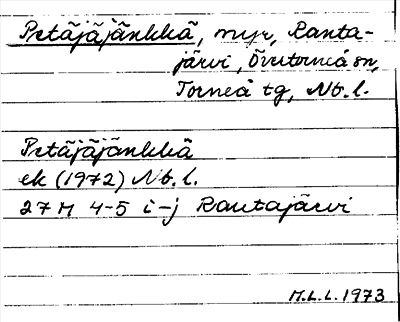 Petäjäjänkkä, myr, Ranta-
järvi, Övertorneå sn,
Torneå tg, Nb. l.
Petäjäjänkkä
ek (1972) Nb. l.
27 M 4-5 i-j Rantajärvi
M.L.L. 1973